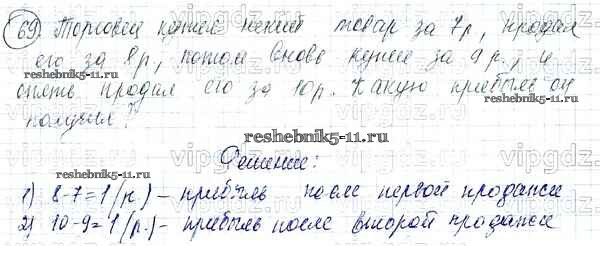 69) Торговец купил некий товар за 7 р., продал
его за 8 р., потом вновь купил за 9 р., и
опять продал его за 10 р. Какую прибыль он
получил?
Решение:
1) 8-7=1 (р.) – прибыль после первой продажи
2) 10-9=1 (р.) – прибыль после второй продажи
vipgdz.
reshebnik5-11.ru
reshebnik5-11.ru
reshebnik5-11.ru
reshebnik5-11.ru